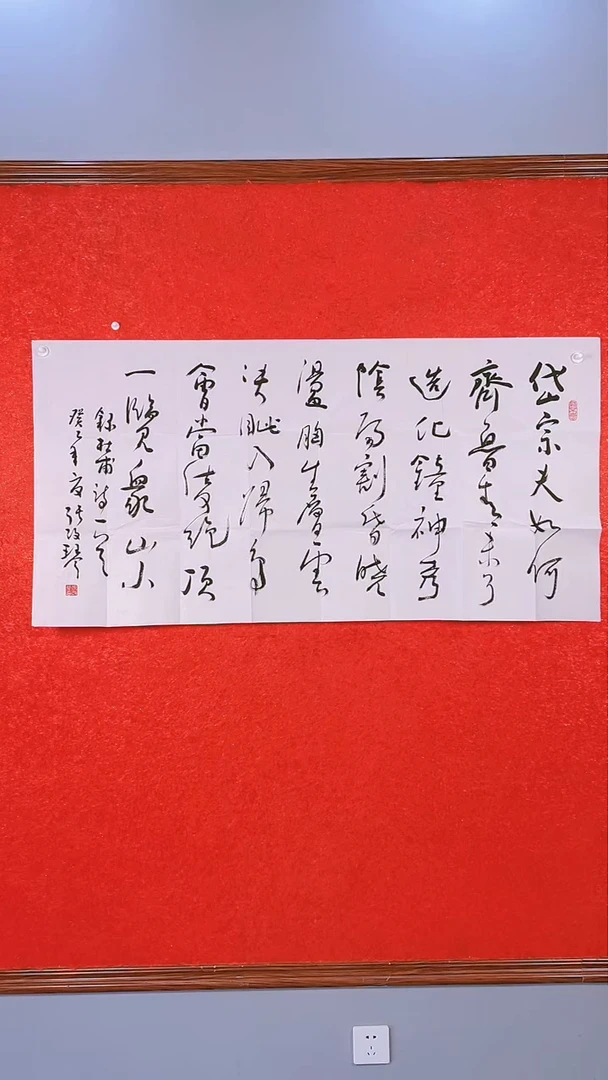 岱宗夫如何
齊魯青未了
造化鐘神秀
陰陽割昏曉
盪胸生層雲
決眦入歸鳥
會當凌絕頂
一覽眾山小
錄杜甫詩一首
癸卯年夏張